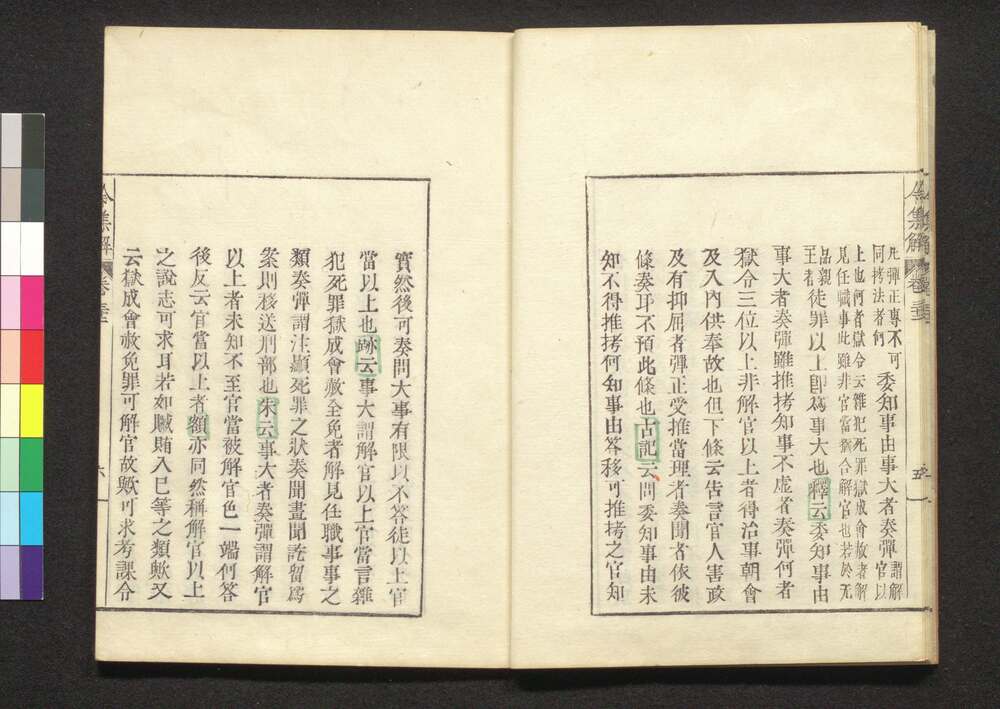 令集解 卷三
五
凡彈正專不可
同拷法者何
委知事由事大者奏彈
謂解
官以
上也何者獄令云雜犯死罪獄成會赦者解
見任職事此雖非官當猶合解官也若於无
品親
王者
徒罪以上即爲事大也釋云委知事由
事大者奏彈雖推拷知事不虛者奏彈何者
獄令三位以上非解官以上者得治事朝會
及入內供奉故也但下條云告言官人害政
及有抑屈者彈正受推當理者奏聞者依彼
條奏耳不預此條也古記云問委知事由未
知不得推拷何知事由答移可推拷之官知
實然後可奏問大事有限以不答徒以上官
當以上也跡云事大謂解官以上官當言雜
犯死罪獄成會赦全免者解見任職事事之
類奏彈謂注顯死罪之狀奏聞畫聞訖留爲
案則移送刑部也朱云事大者奏彈謂解官
以上者未知不至官當被解官色一端何答
後反云官當以上者額亦同然稱解官以上
之說志可求耳若如贓賄入已等之類歟又
云獄成會赦免罪可解官故歟可求考課令
令集解 卷三
六